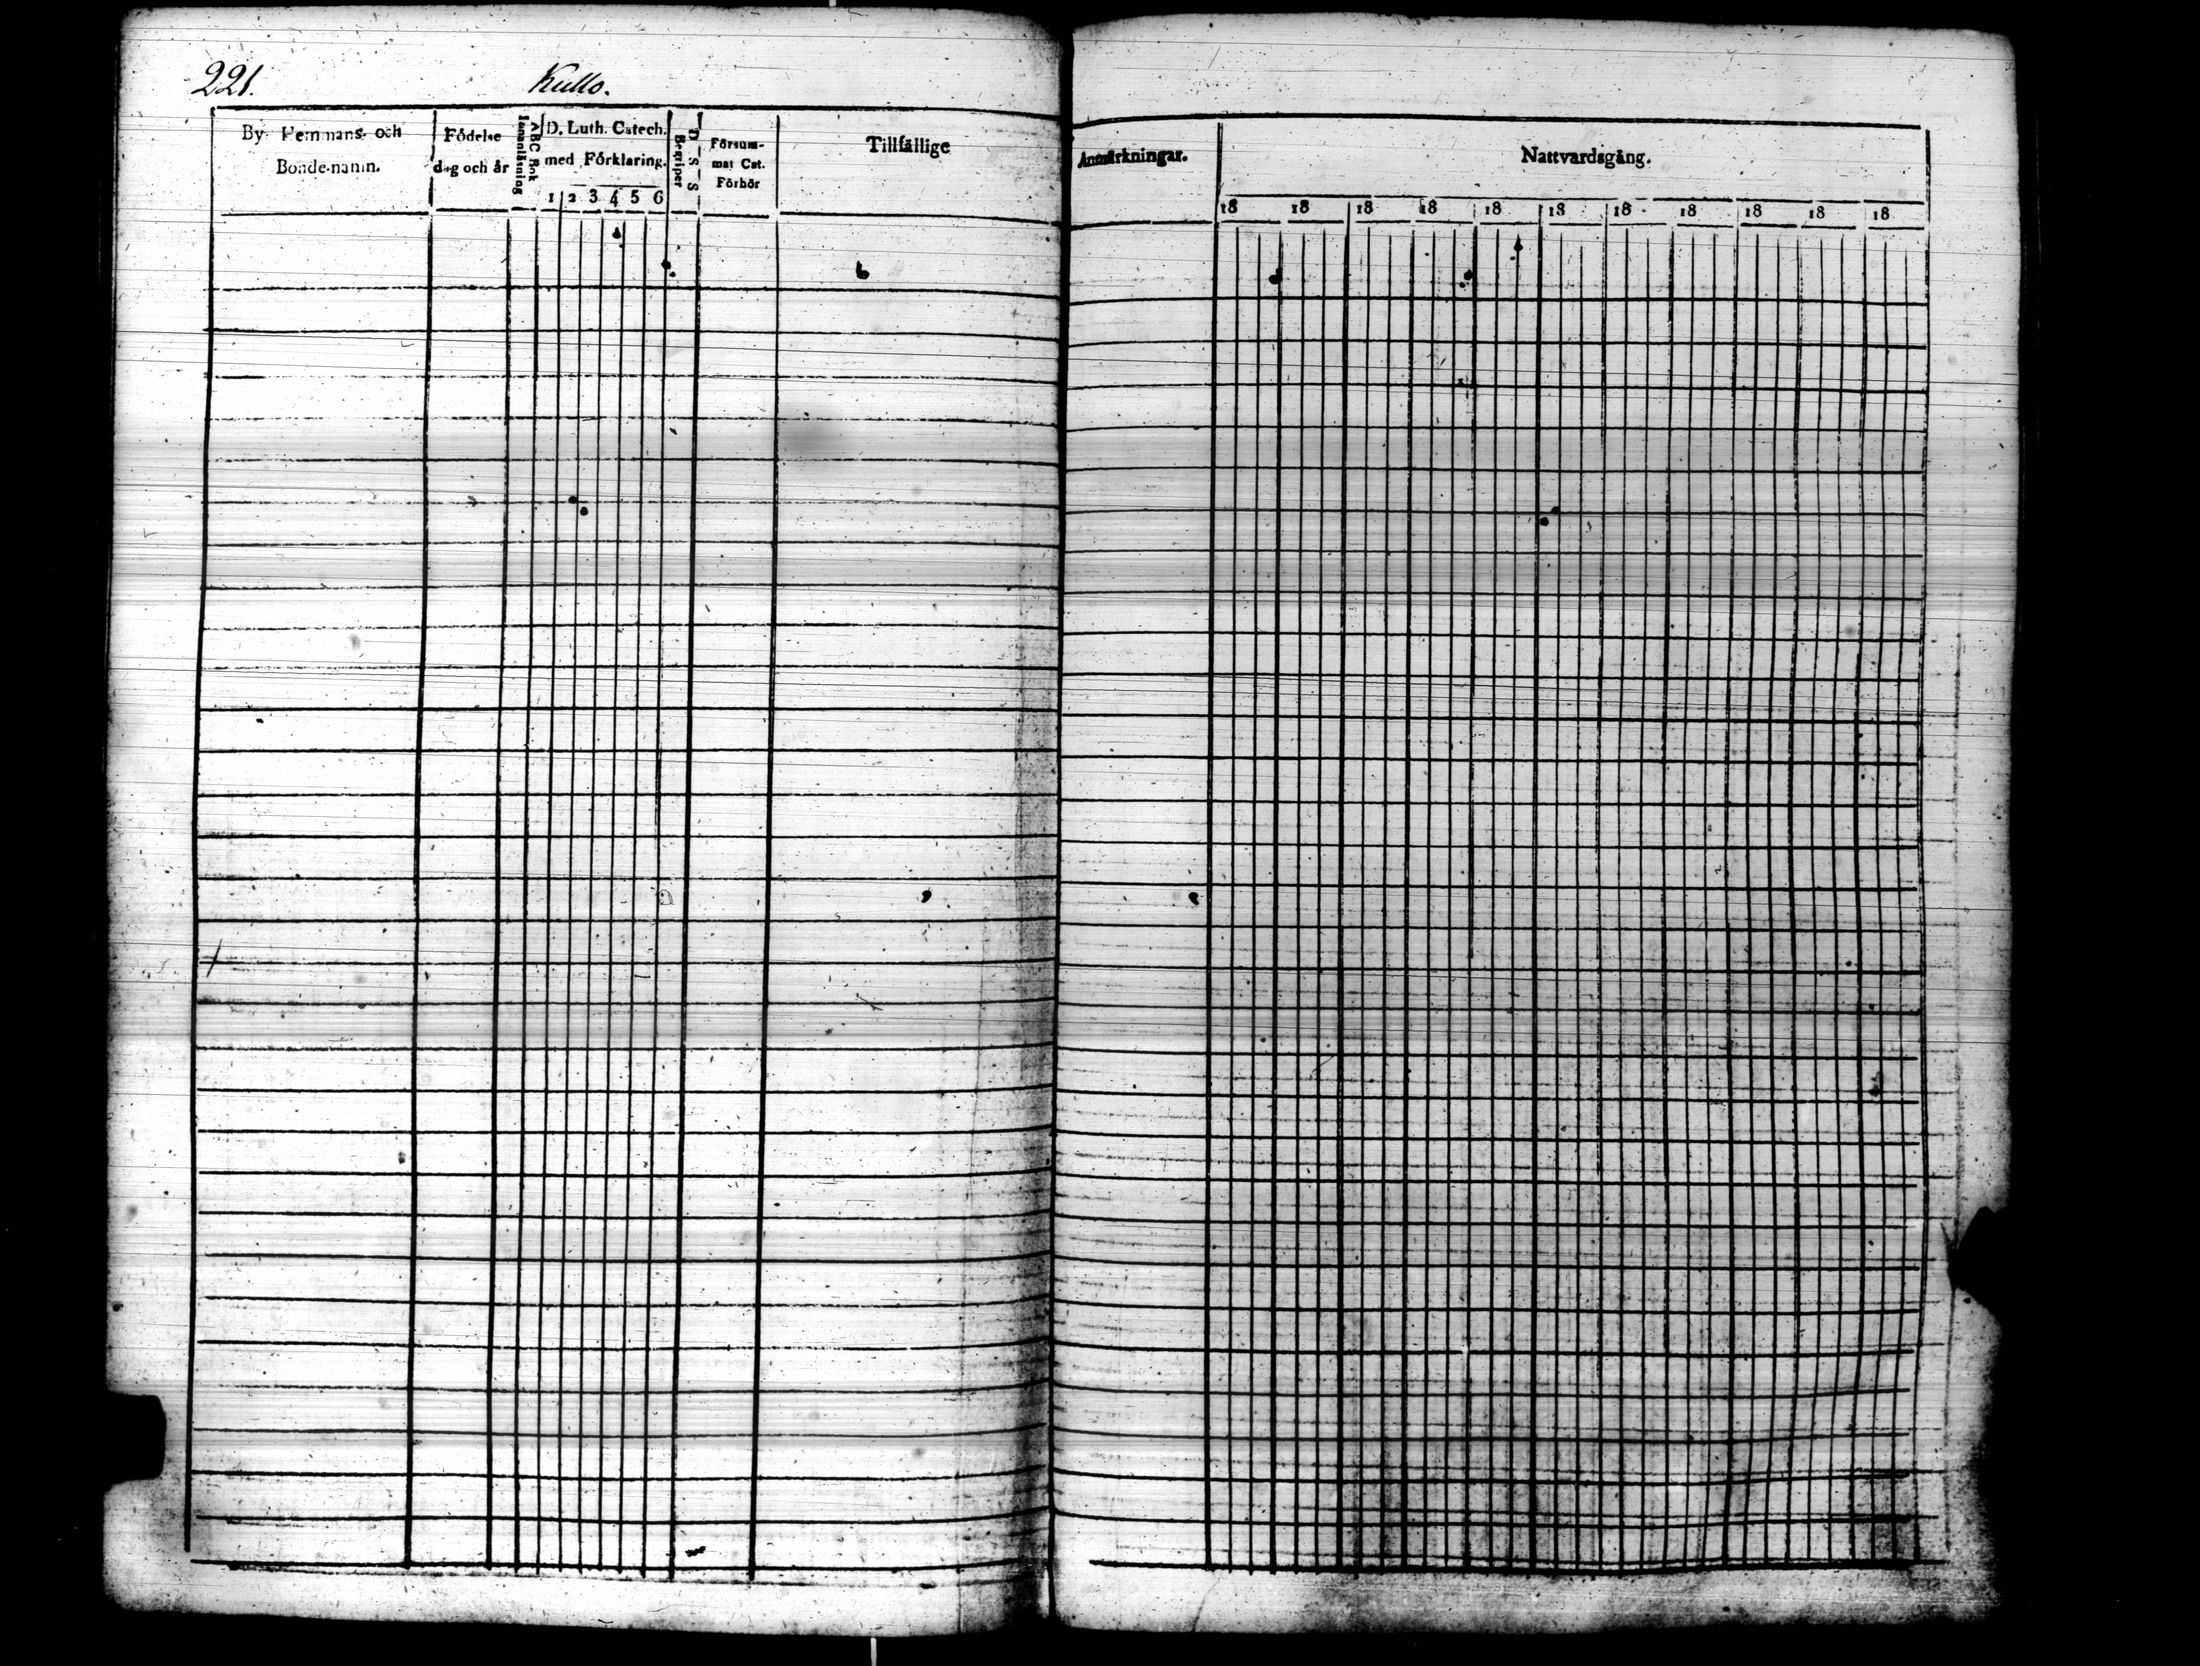 221. Kullo.
By- Hemmans- och
Bonde-namn.
Födelse
dag och år
ABC Bok
Innanläsning
D. Luth. Catech.
med Förklaring.
1 2 3 4 5 6
Begriper
D-S-S
Försum-
mat Cat.
Förhör
Tillfällige
Anmärkningar.
Nattvardsgång.
18 18 18 18 18 18 18 18 18 18 18